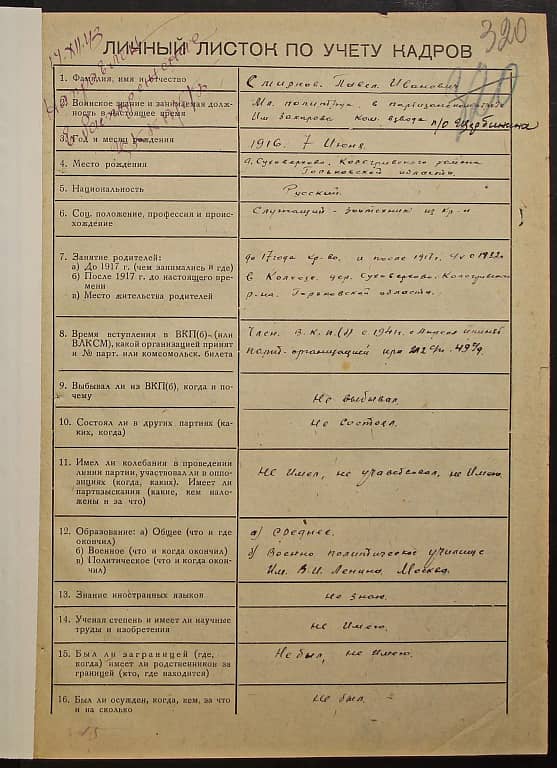 14-XII-43
320
ЛИЧНЫЙ ЛИСТОК ПО УЧЕТУ КАДРОВ
320
1. Фамилия, имя и отчество
Смирнов. Павел Иванович
2. Воинское звание и занимаемая долж-
ность в настоящее время
Мл. политрук. в партизанском
Им. Захарова ком. взвода п/о Щербинина
3. Год и месяц рождения
1916. 7 Июня.
4. Место рождения
д. Суховерково. Кологривского района
Горьковской области.
5. Национальность
Русский.
6. Соц. положение, профессия и проис-
хождение
Служащий - из кр-н
7. Занятие родителей:
а) До 1917 г. (чем занимались и где)
б) После 1917 г. до настоящего вре-
мени
в) Место жительства родителей
до 17 года кр-во. и после 1917г.
в Колхозе. дер. Суховерково. Кологривского
р-на. Горьковской области.
8. Время вступления в ВКП(б)-(или
ВЛКСМ), какой организацией принят
и № парт. или комсомольск. билета
Член. В.К.П.(б) с 1941 г.
парт-организацией при
9. Выбывал ли из ВКП(б), когда и по-
чему
Не выбывал
10. Состоял ли в других партиях (ка-
ких, когда)
Не состоял.
11. Имел ли колебания в проведении
линии партии, участвовал ли в оппо-
зициях (когда, каких). Имеет ли
партвзыскания (какие, кем нало-
жены и за что)
Не имел, не участвовал, не имею.
12. Образование: а) Общее (что и где
окончил)
б) Военное (что и когда окончил)
в) Политическое (что и когда окон-
чил)
а) Среднее.
б) Военно политическое училище
Им. В.И. Ленина. Москва.
13. Знание иностранных языков
не знаю.
14. Ученая степень и имеет ли научные
труды и изобретения
не имею.
15. Был ли заграницей (где,
когда) имеет ли родственников за
границей (кто, где находится)
Не был, не имею.
16. Был ли осужден, когда, кем, за что
и на сколько
не был.